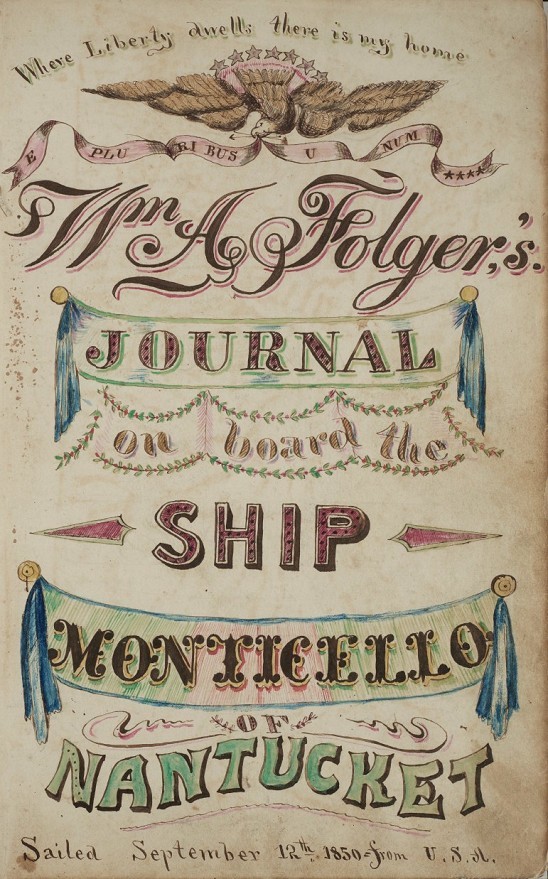 Where Liberty dwells there is my home
E PLU RI BUS U NUM ****
Wm A Folger,'s.
JOURNAL
on board the
SHIP
MONTICELLO
OF
NANTUCKET
Sailed September 12th. 1850=from U.S.A.